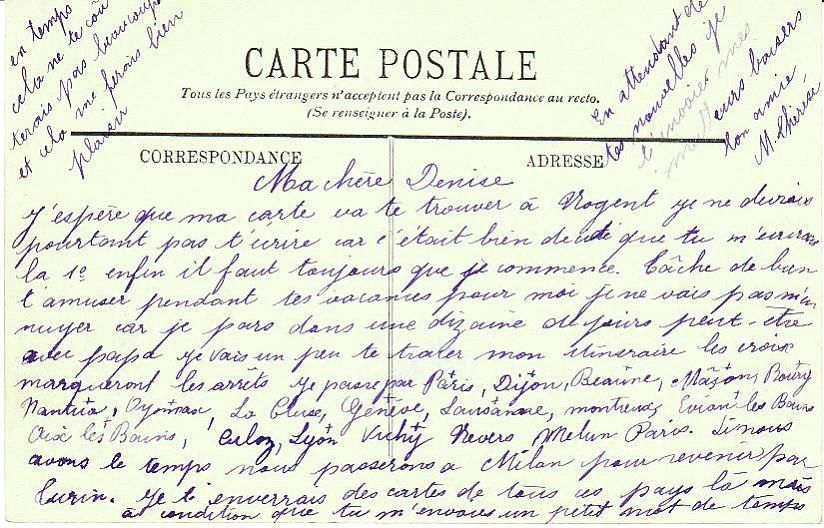 CARTE POSTALE
Tous les Pays étrangers n'acceptent pas la Correspondance au recto.
(Se renseigner à la Poste).
CORRESPONDANCE
ADRESSE
Ma chère Denise
J'espère que ma carte va te trouver à Nogent je ne devrais
pourtant pas t'écrire car c'était bien que tu m'écrirais
la 1e enfin il faut toujours que je commence. Tâche de bien
t'amuser pendant tes vacances pour moi je ne vais pas m'en
nuyer car je pars dans une dizaine de jours peut-etre
avec papa je vais un peu te tracer mon itineraire les croix
marqueront les arrêts je passe par Paris, Dijon, Beaune, Mâçon,
Nantua, Oyonnax, La Cluse, Genève, Lausanne, montreux, Evian les Bains
Aix les Bains, Culoz, Lyon Vichy Nevers Melun Paris. Si nous
avons le temps nous passerons a Milan pour revenir par
Turin. Je t'enverrais des cartes de tous ces pays là mais
a condition que tu m'envoies un petit mot de temps
en temps
cela ne te coû
terais pas beaucoup
et cela me ferais bien
plaisir
En attendant de
tes nouvelles je
t'envoies mes
meilleurs baisers
ton amie
M. Thérèse